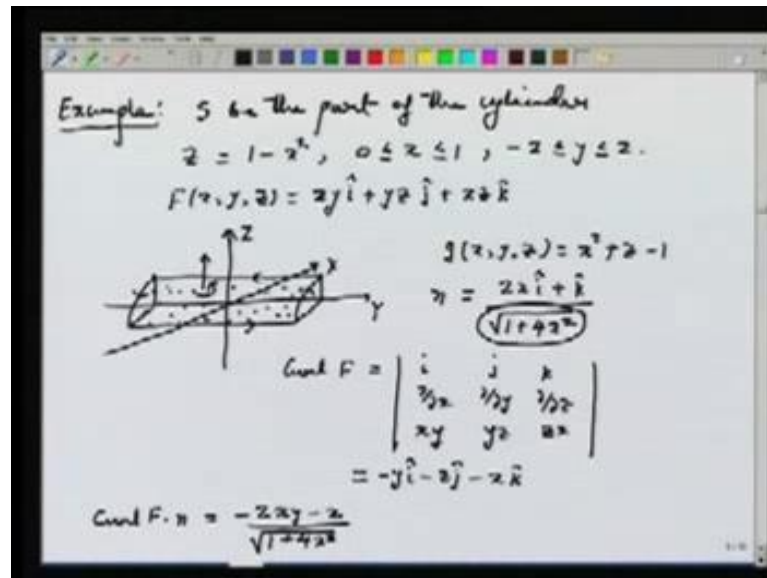 Example: S be the part of the cylinder
z = 1 - x², 0 ≤ x ≤ 1, -2 ≤ y ≤ 2.
F(x, y, z) = xy î + yz ĵ + xz k̂
Z
X
Y
g(x, y, z) = x² + z - 1
n = (2x î + k̂) / √(1 + 4x²)
Curl F = | i j k |
| ∂/∂x ∂/∂y ∂/∂z |
| xy yz zx |
= -y î - z ĵ - x k̂
Curl F. n = (-2xy - x) / √(1 + 4x²)